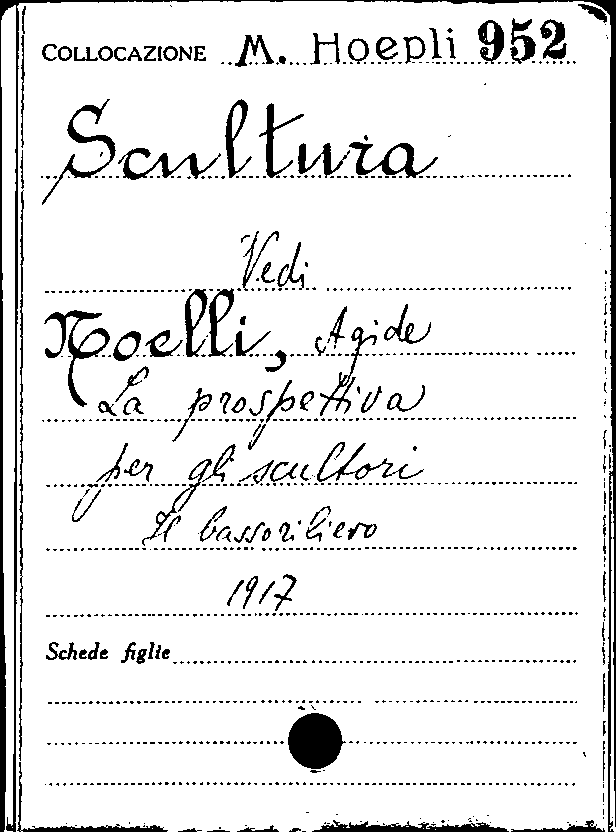 COLLOCAZIONE M. Hoepli 952
Scultura
Vedi
Noelli, Agide
La prospettiva
per gli scultori
Il bassoriliero
1917
Schede figlie